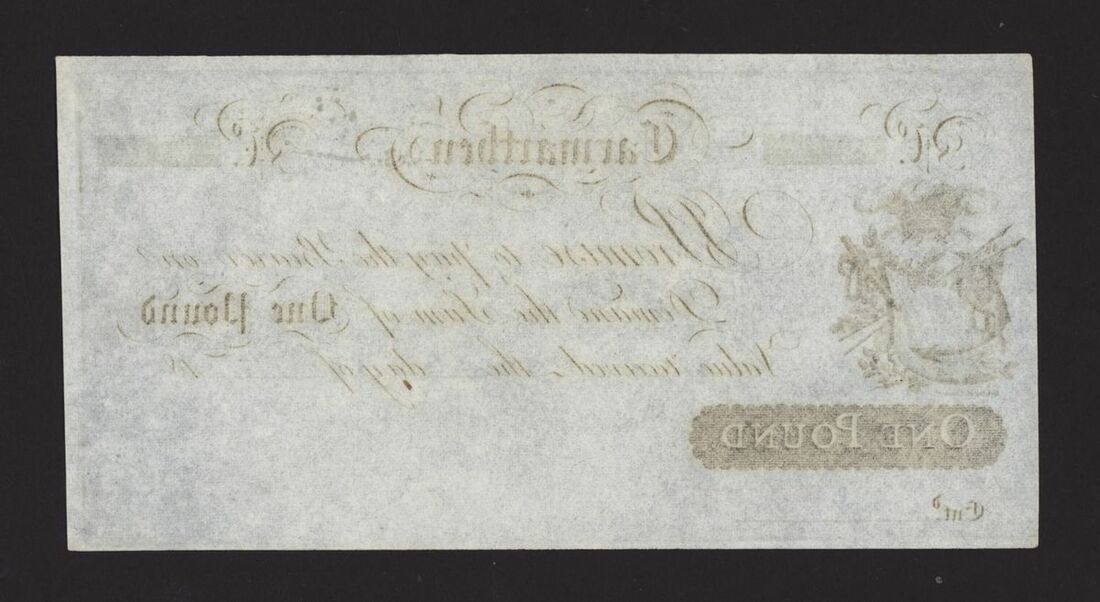 No. Carmarthen No.
I Promise to pay the Bearer on
Demand the Sum of One Pound
Value received the day of 18
ONE POUND
Entd.